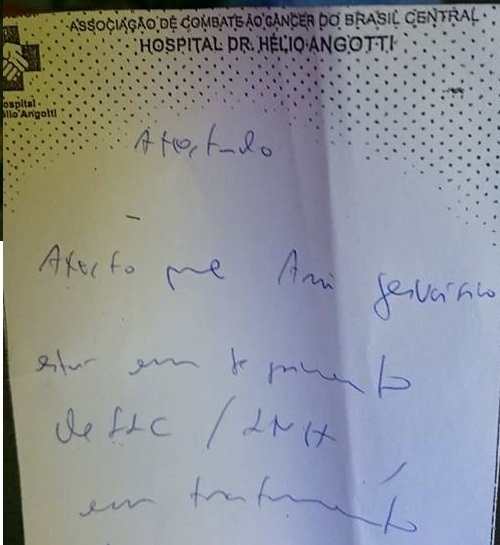 ASSOCIAÇÃO DE COMBATE AO CÂNCER DO BRASIL CENTRAL
HOSPITAL DR. HÉLIO ANGOTTI
Hospital
Hélio Angotti
Atestado
Atesto que
está em seguimento
de LLC / LNH
em tratamento